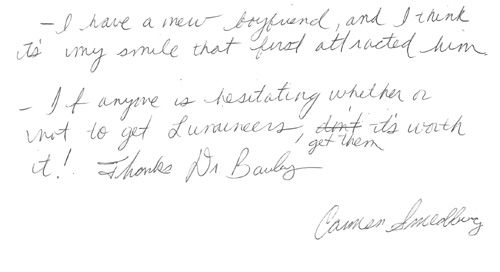 - I have a new boyfriend, and I think
it's my smile that first attracted him
- If anyone is hesitating whether or
not to get Lumineers, don't it's worth
get them
it! Thanks Dr Bauly
Carmen Smedberg